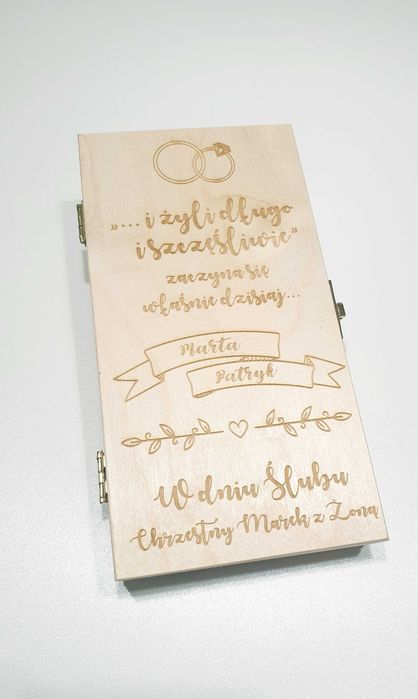 „... i żyli długo
i szczęśliwie”
zaczyna się
właśnie dzisiaj...
Marta
Patryk
W dniu Ślubu
Chrzestny Marek z Żoną